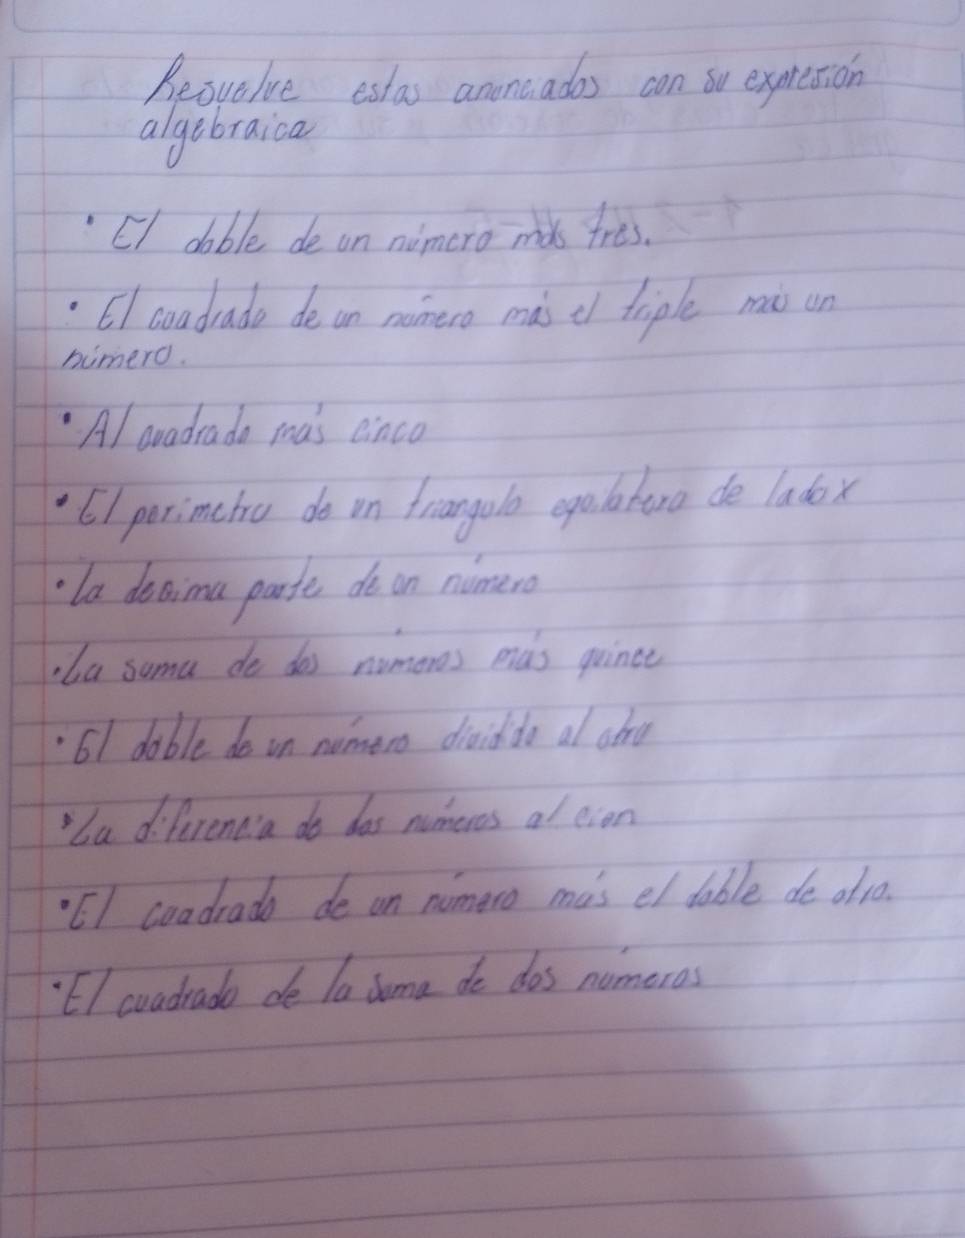 Resuelve estas anunciados con su expresión
algebraica
• El doble de un número más tres.
• El cuadrado de un número más el triple más un
número.
• Al cuadrado más cinco
• El perimetro de un triangulo equilatero de lado x
• La decima parte de un número
• La suma de dos números más quince
• El doble de un número dividido al otro
• La diferencia de dos números al cien
• El cuadrado de un número más el doble de otro.
• El cuadrado de la suma de dos números